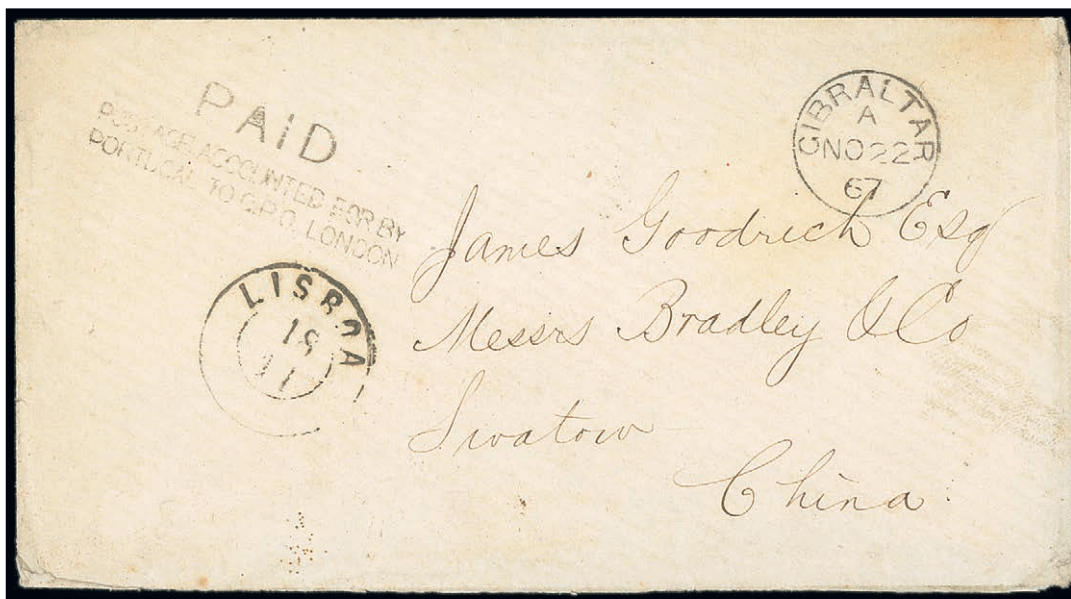 PAID
POSTAGE ACCOUNTED FOR BY
PORTUGAL TO G.P.O. LONDON
GIBRALTAR
A
NO 22
67
LISBOA
11
James Goodrich Esq
Messrs Bradley & Co
Swatow
China